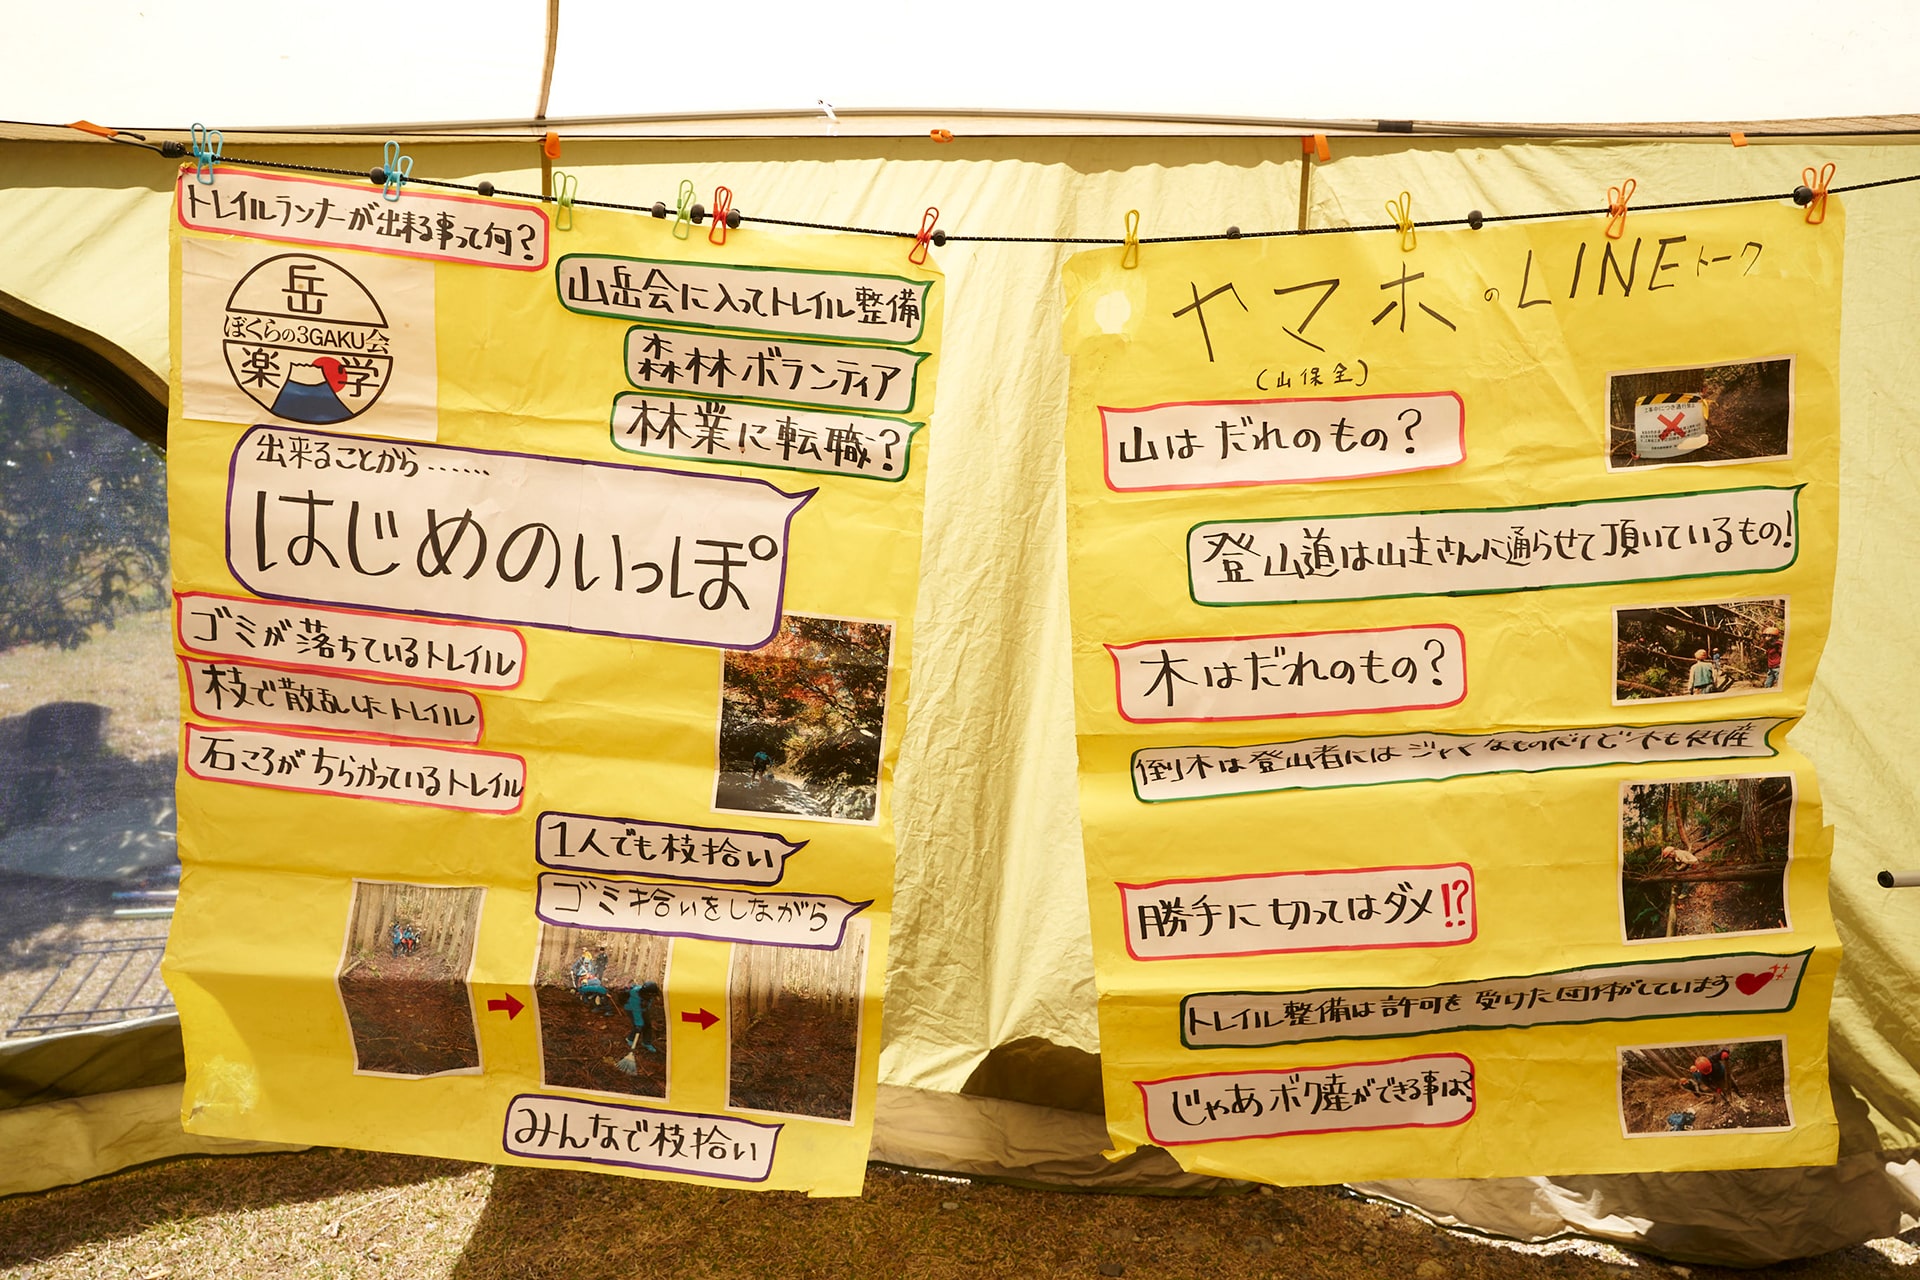 トレイルランナーが出来る事って何?
岳
ぼくらの3GAKU会
楽 学
山岳会に入ってトレイル整備
森林ボランティア
林業に転職?
出来ることから……
はじめのいっぽ
ゴミが落ちているトレイル
枝で散乱したトレイル
石ころがちらかっているトレイル
1人でも枝拾い
ゴミ拾いをしながら
みんなで枝拾い
ヤマホのLINEトーク
(山保全)
山はだれのもの?
登山道は山主さんに通らせて頂いているもの!
木はだれのもの?
倒木は登山者にはジャマなものだけど木も財産
勝手に切ってはダメ!?
トレイル整備は許可を受けた団体がしています
じゃあボク達ができる事は?